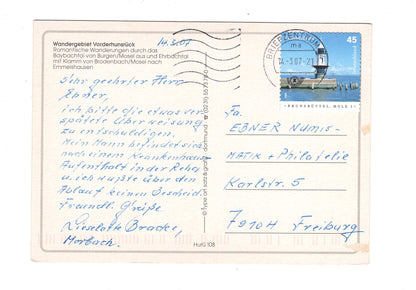 14.3.07
Wandergebiet Vorderhunsrück
Romantische Wanderungen durch das
Baybachtal von Burgen/Mosel aus und Ehrbachtal
mit Klamm von Brodenbach/Mosel nach
Emmelshausen
Sehr geehrter Herr
Ebner,
ich bitte die etwas ver-
spätete Überweisung
zu entschuldigen.
Mein Mann befindet sich
nach einem Krankenhaus-
Aufenthalt in der Reha
u. ich wußte über den
Ablauf keinen Bescheid.
Freundl. Grüße
Lieselotte Bracke,
Morbach.
HuRü 108
BRIEFZENTRUM
ma
14-3.07-
45
Fa.
EBNER NUMIS-
MATIK + Philatelie
Karlstr. 5
79104 Freiburg